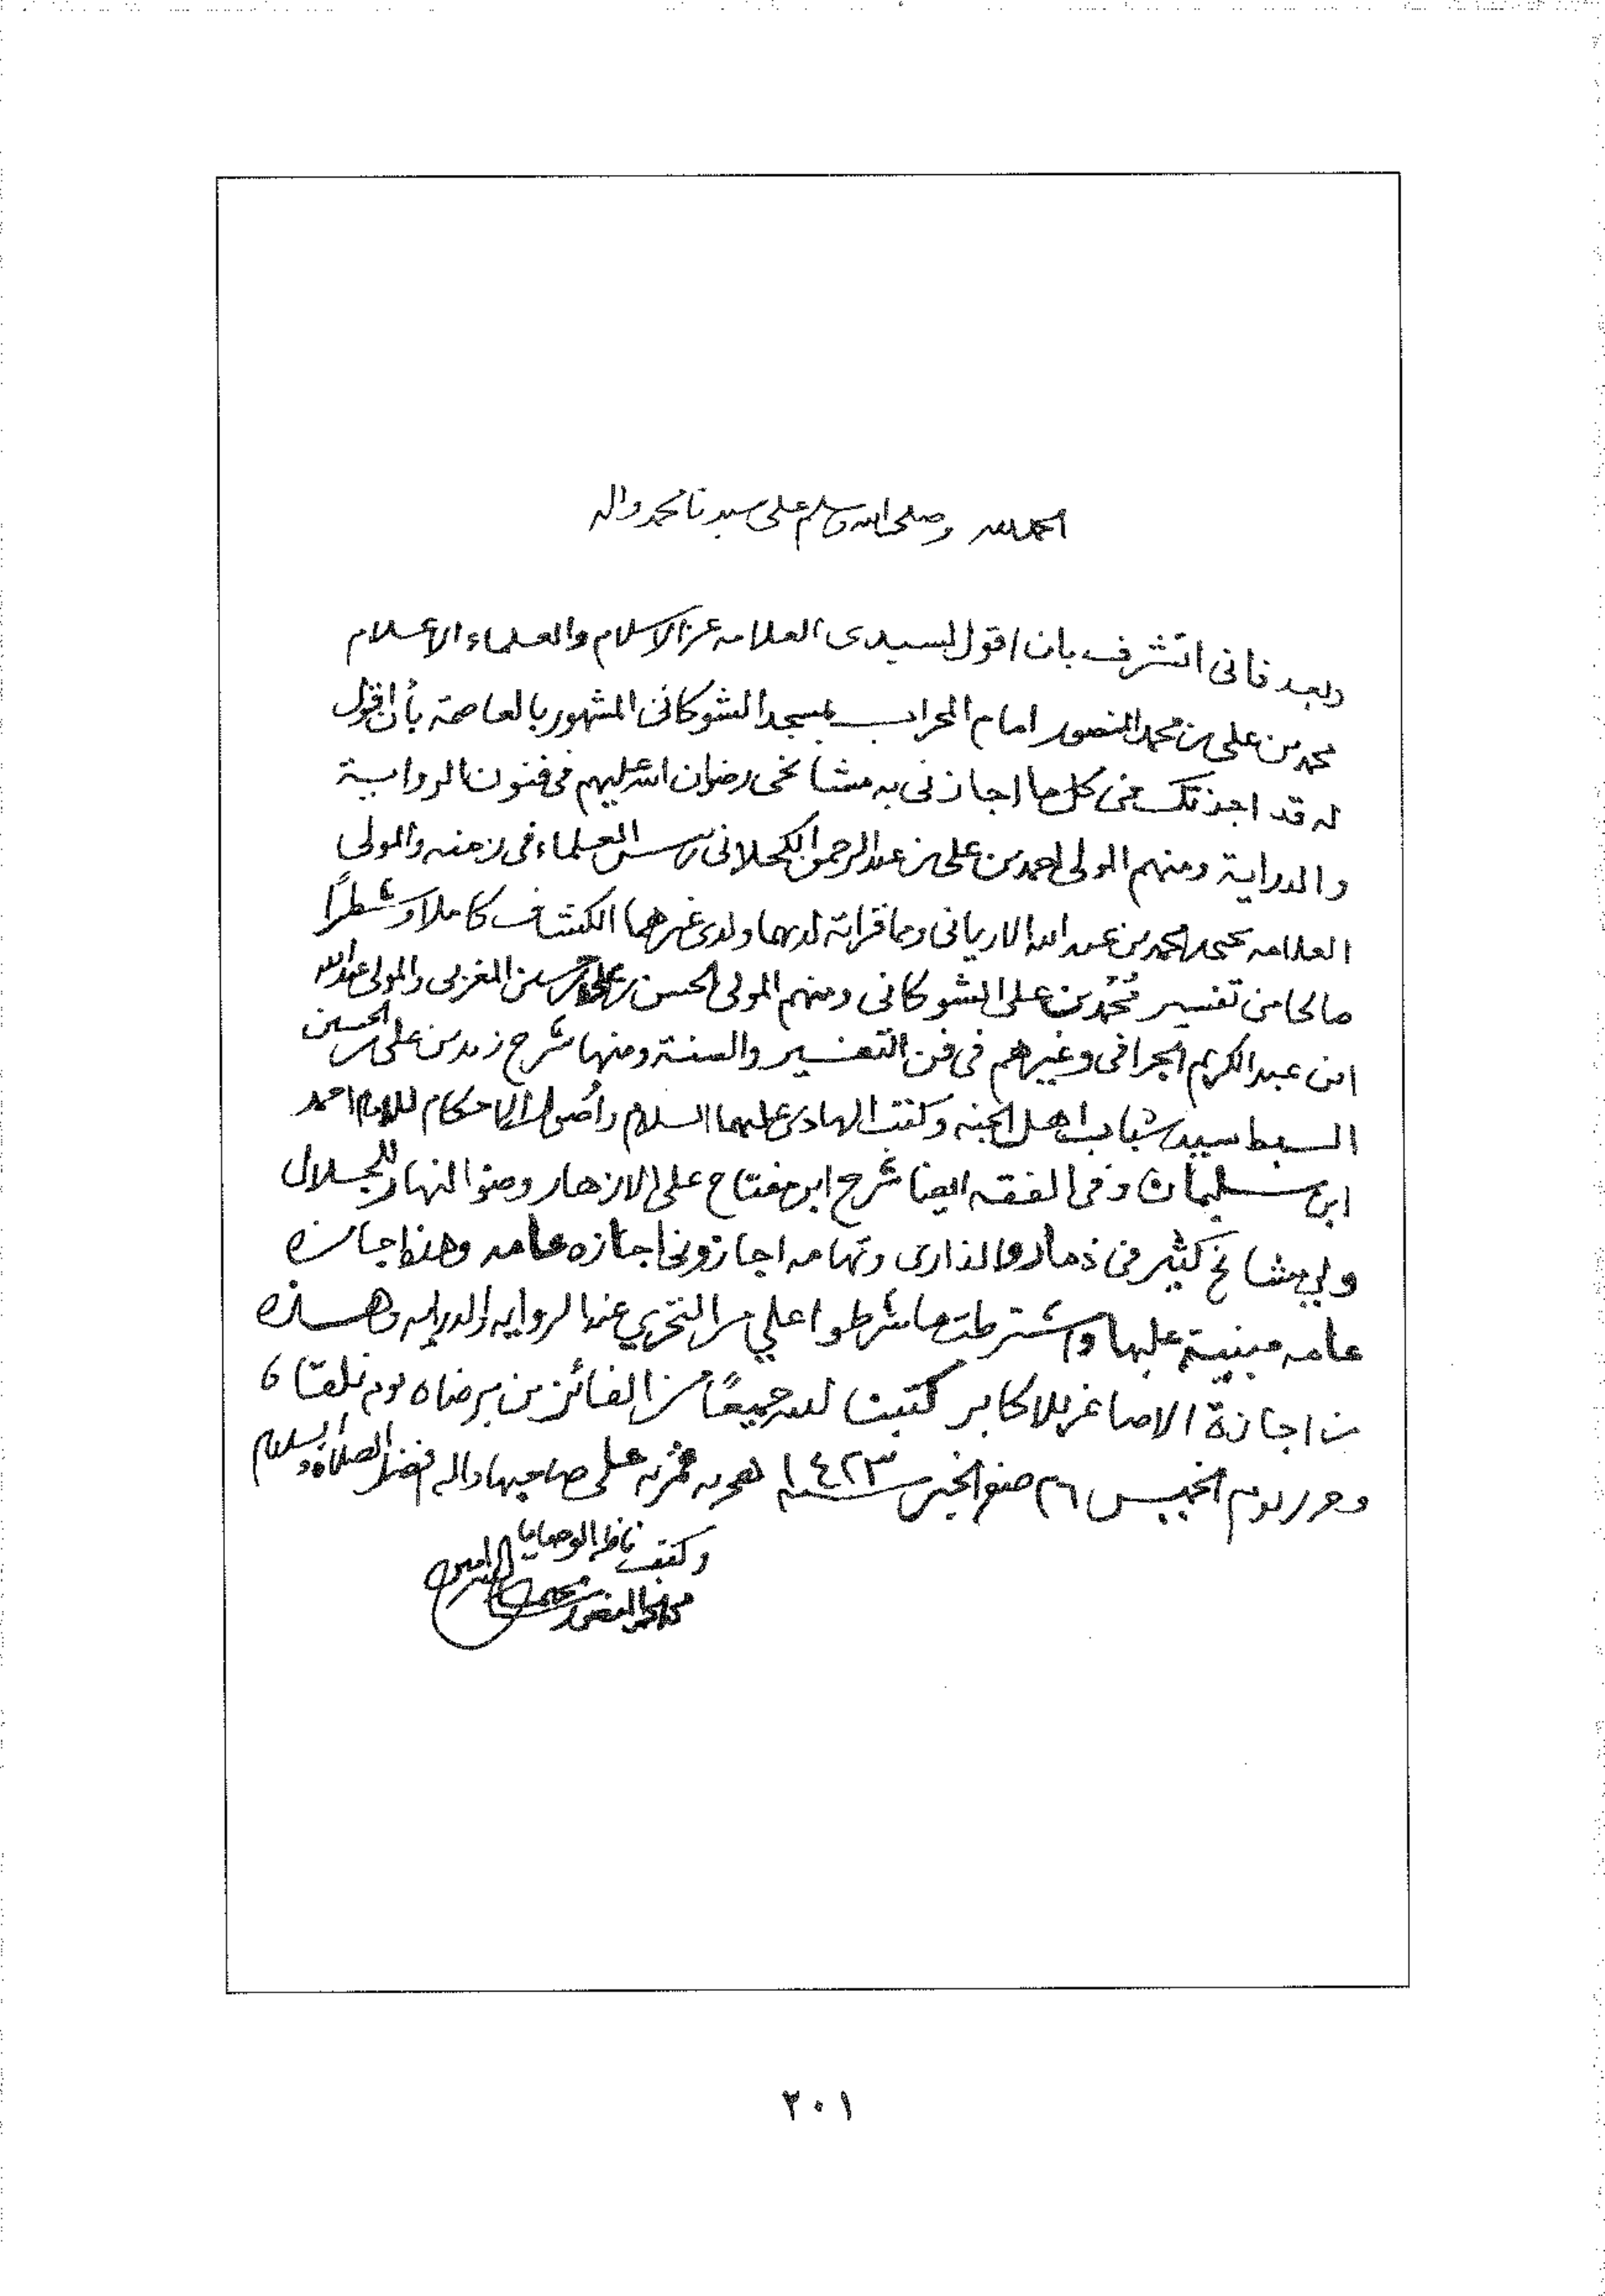 الحمد لله وصلى الله وسلم على سيدنا محمد واله
وبعد فانى اتشرف بان اقول لسيدى العلامه عز الاسلام والعلماء الاعلام
محمد بن على بن محمد المنصور امام المحراب بمسجد الشوكانى المشهور بالعاصمة بأن اقول
له قد اجزتك فى كل ما اجازنى به مشائخى رضوان الله عليهم فى فنون الرواية
والدراية ومنهم المولى احمد بن على بن عبد الرحمن الكحلانى رئيس العلماء فى زمنه والمولى
العلامه يحيى بن محمد بن عبد الله الاريانى وما قراته لديهما ولدى غيرهما الكشاف كاملا وشطرًا
صالحا من تفسير مُحمّد بن على الشوكانى ومنهم المولى الحسن بن على حسين المغربى والمولى عبد الله
ابن عبد الكريم الجرافى وغيرهم فى فن التفسير والسنة ومنها شرح زيد بن على بن الحسين
السبط سيد شباب اهل الجنه وكتب الهادى عليهما السلام وأصول الاحكام للامام احمد
ابن سليمان وفى الفقه ايضا شرح ابن مفتاح على الازهار وضوء النهار للجلال
ولي مشائخ كثير فى ذمار والذارى وتهامه اجازونى اجازه عامه وهذه اجازه
عامه مبنية عليها واشترطت ما شرطوا علي من التحري عند الروايه والدرايه وهذه
من اجازة الاصاغر للاكابر كتبنا لله جميعًا من الفائزين برضاه يوم نلقاه
وحرر يوم الخميس ٢٦ صفر الخير سنة ١٤٢٣ هجريه قمريه على صاحبها واله افضل الصلاة والسلام
وكتب ناظر الوصايا